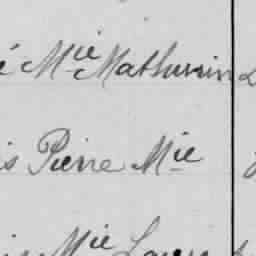 é Mie Mathurin
is Pierre Mie
Mie Louis